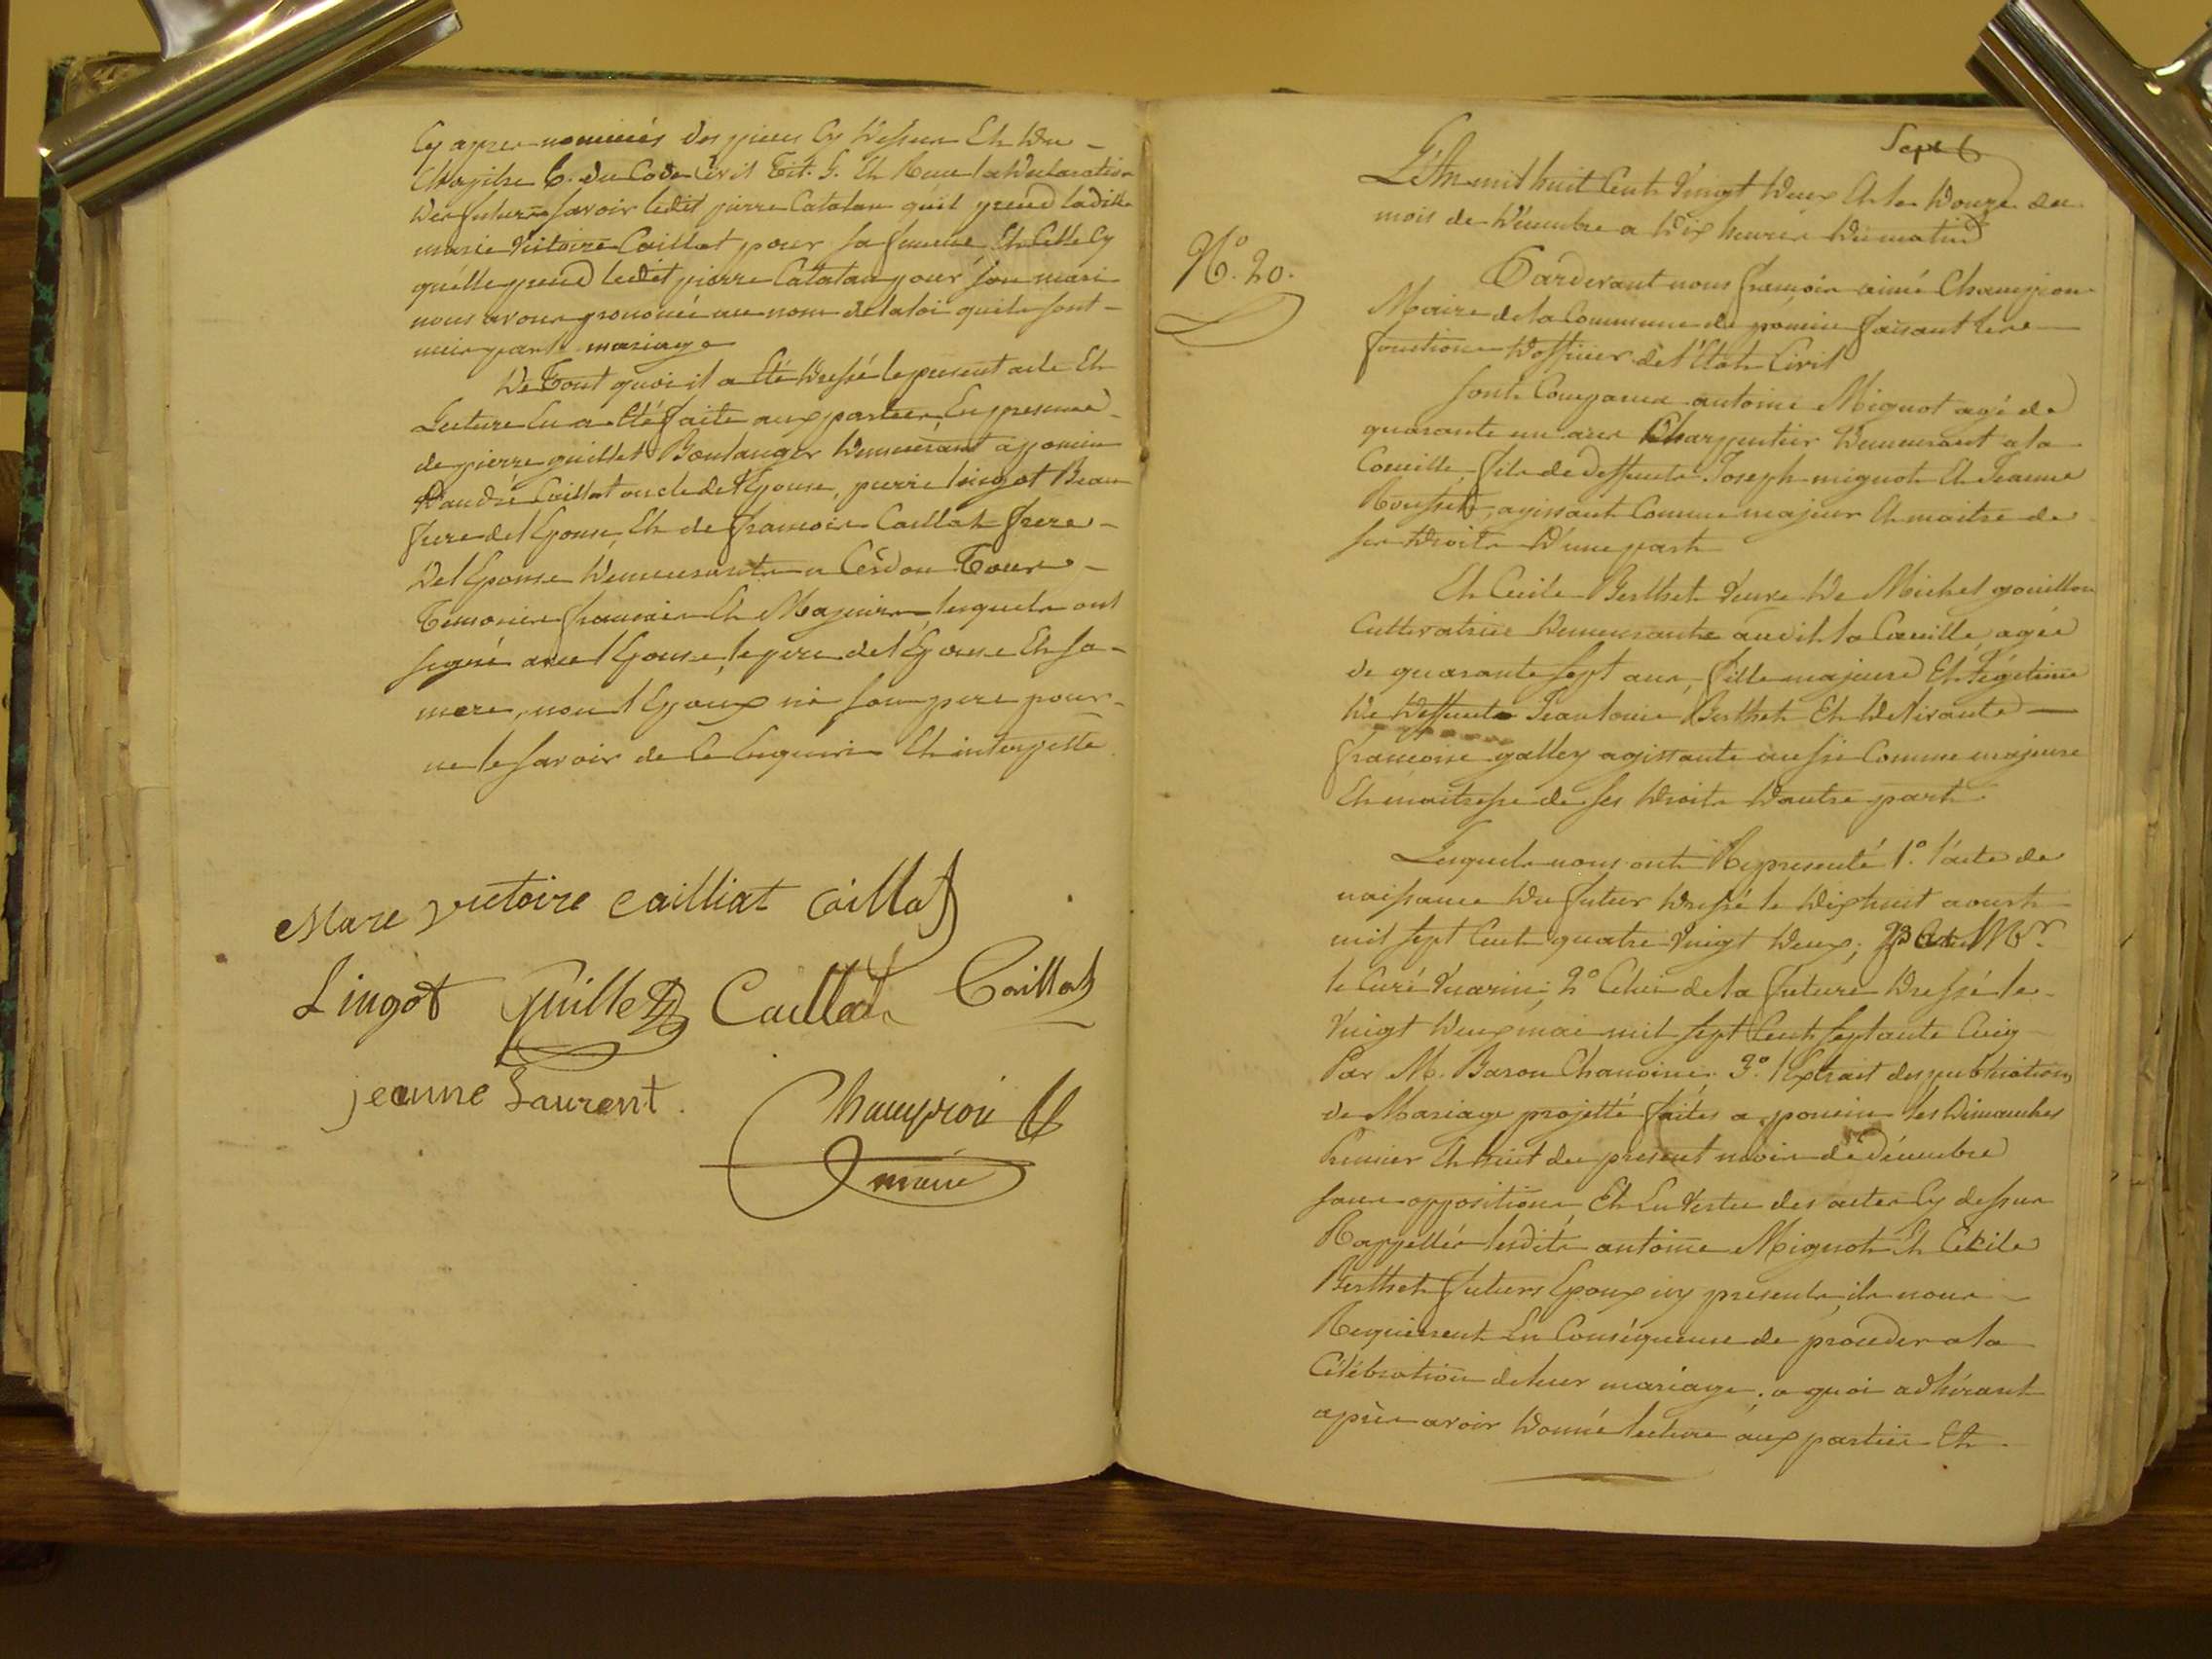 Cy apres nommés des pieces Cy dessus Et du
Chapitre 6. du Code Civil Tit. 5. Et Reçu la declaration
des futurs savoir ledit pierre Catalan qu'il prend ladite
marie Victoire Caillat pour sa femme Et Celle Cy
qu'elle prend ledit pierre Catalan pour son mari
nous avons prononcé au nom de la loi quils sont
unis par le mariage
De Tout quoi il a Eté dressé le present acte Et
Lecture En a Eté faite aux parties En presence
de pierre guillet Boulanger demeurant a poncin
D'andré Caillat oncle de l'Epouse, pierre lingot Beau
frere del Epouse, Et de francois Caillat frere
del Epouse demeurants a Cerdon Tous
Temoins francais Et Majeurs, lesquels ont
signé avec l'Epouse, le pere del'Epouse Et sa
mere, non l'Epoux ni son pere pour
ne le savoir de Ce Enquis Et interpellé
Mare victoire cailliat Caillat
Lingot guillet Caillat Caillat
jeanne Laurent.
Champion
maire
Sept 6
N.° 20.
L'An mil huit Cent Vingt deux Et le douze du
mois de décembre a dix heures du matin
Pardevant nous françois aimé Champion
Maire de la Commune de poncin faisant les
fonctions d'officier de l'Etat Civil
sont Comparus antoine Mignot agé de
quarante un ans Charpentier demeurant a la
Coeuille, fils de deffunts Joseph mignot Et Jeanne
Rousset, agissant Comme majeur Et maitre de
ses droits d'une part
Et Cecile Berthet Veuve de Michel gouillon
Cultivatrice demeurante audit la Coeuille, agée
de quarante sept ans, fille majeure Et Légitime
de deffunt Jean louis Berthet Et de vivante
françoise galley agissante aussi Comme majeure
Et maitresse de ses droits d'autre part.
Lesquels nous ont Représenté 1.° l'acte de
naissance du futur dressé le dix huit aoust
mil sept Cent quatre Vingt deux; Par Mr.
le Curé Varin; 2° Celui de la future dressé le
Vingt deux mai mil sept Cent septante Cinq
Par M. Baron Chanoine; 3.° l'Extrait des publications
de Mariage projetté faites a poncin les dimanches
Premier Et huit du présent mois de décembre
sans opposition, Et En Vertu des actes Cy dessus
Rappellés lesdits antoine Mignot Et Cécile
Berthet futurs Epoux icy présents, ils nous
Requierent En Conséquence de procéder a la
Célébration de leur mariage. a quoi adhérant
après avoir donné lecture aux parties Et